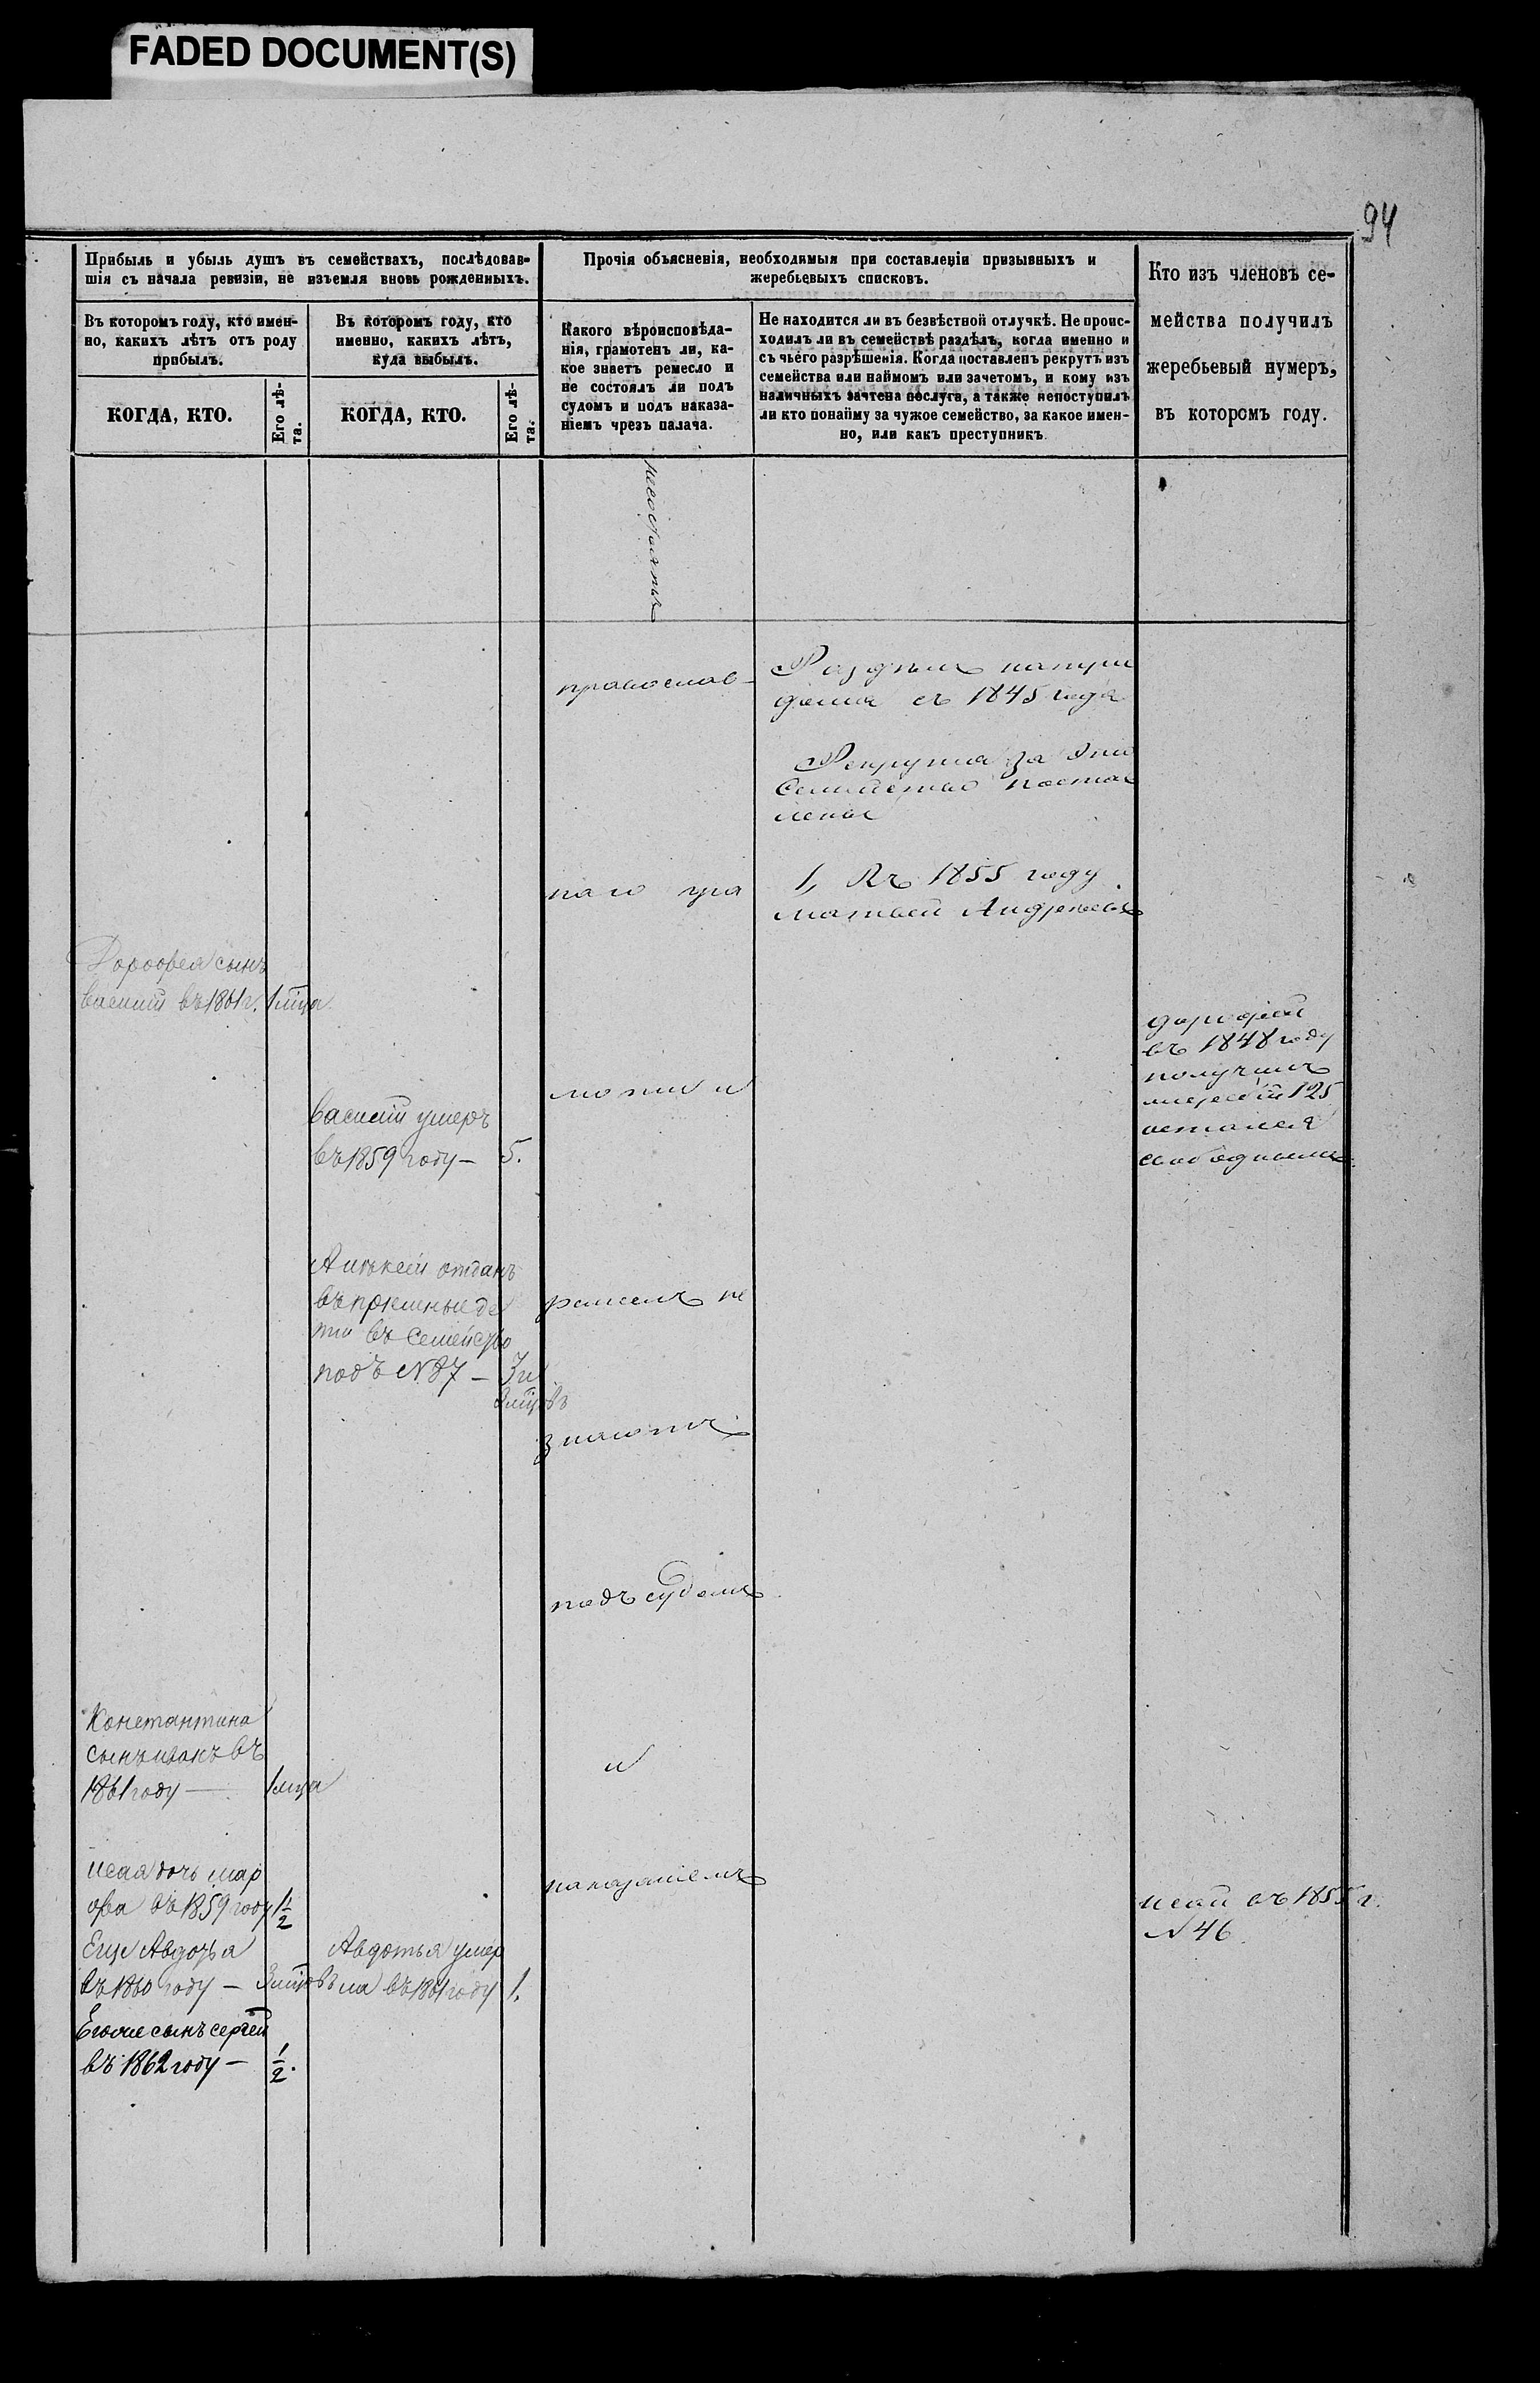 FADED DOCUMENT(S)
94
Прибыль и убыль душъ въ семействахъ, послѣдовав-
шія съ начала ревизіи, не изъемля вновь рожденныхъ.
Въ которомъ году, кто имен-
но, какихъ лѣтъ отъ роду
прибылъ.
КОГДА, КТО.
Его лѣ-
та.
Въ которомъ году, кто
именно, какихъ лѣтъ,
куда выбылъ.
КОГДА, КТО.
Его лѣ-
та.
Прочія объясненія, необходимыя при составленіи призывныхъ и
жеребьевыхъ списковъ.
Какого вѣроисповѣда-
нія, грамотенъ ли, ка-
кое знаетъ ремесло и
не состоялъ ли подъ
судомъ и подъ наказа-
ніемъ чрезъ палача.
Не находится ли въ безвѣстной отлучкѣ. Не проис-
ходилъ ли въ семействѣ раздѣлъ, когда именно и
съ чьего разрѣшенія. Когда поставленъ рекрутъ изъ
семейства или наймомъ или зачетомъ, и кому изъ
наличныхъ зачтена послуга, а также непоступилъ
ли кто понайму за чужое семейство, за какое имен-
но, или какъ преступникъ.
Кто изъ членовъ се-
мейства получилъ
жеребьевый нумеръ,
въ которомъ году.
Дорофея сынъ
василій въ 1861 г. 1 мѣца
Константина
сынъ иванъ въ
1861 году — 1 мца
исая дочь мар
фа въ 1859 году 1 1/2
Еще Авдотья
въ 1860 году —
Егоже сынъ сергей
въ 1862 году — 1/2.
василій умеръ
въ 1859 году — 5.
Алексѣй отданъ
въ пріемные де
ти въ семейство
подъ № 87 — 3 и
Авдотья умер
ла въ 1861 году 1.
несостоялъ
православ-
наго гра
моти и
ремеслъ не
знаютъ
подъ судомъ
и
наказаніемъ
Раздѣлъ
съ 1845 года
Рекрута за это
Семейство постав
лены
1, Въ 1855 году
матвей Андреевъ
дорофей
въ 1848 году
получилъ
жеребій 125
остался
свободнымъ
исай въ 1855 г.
№ 46